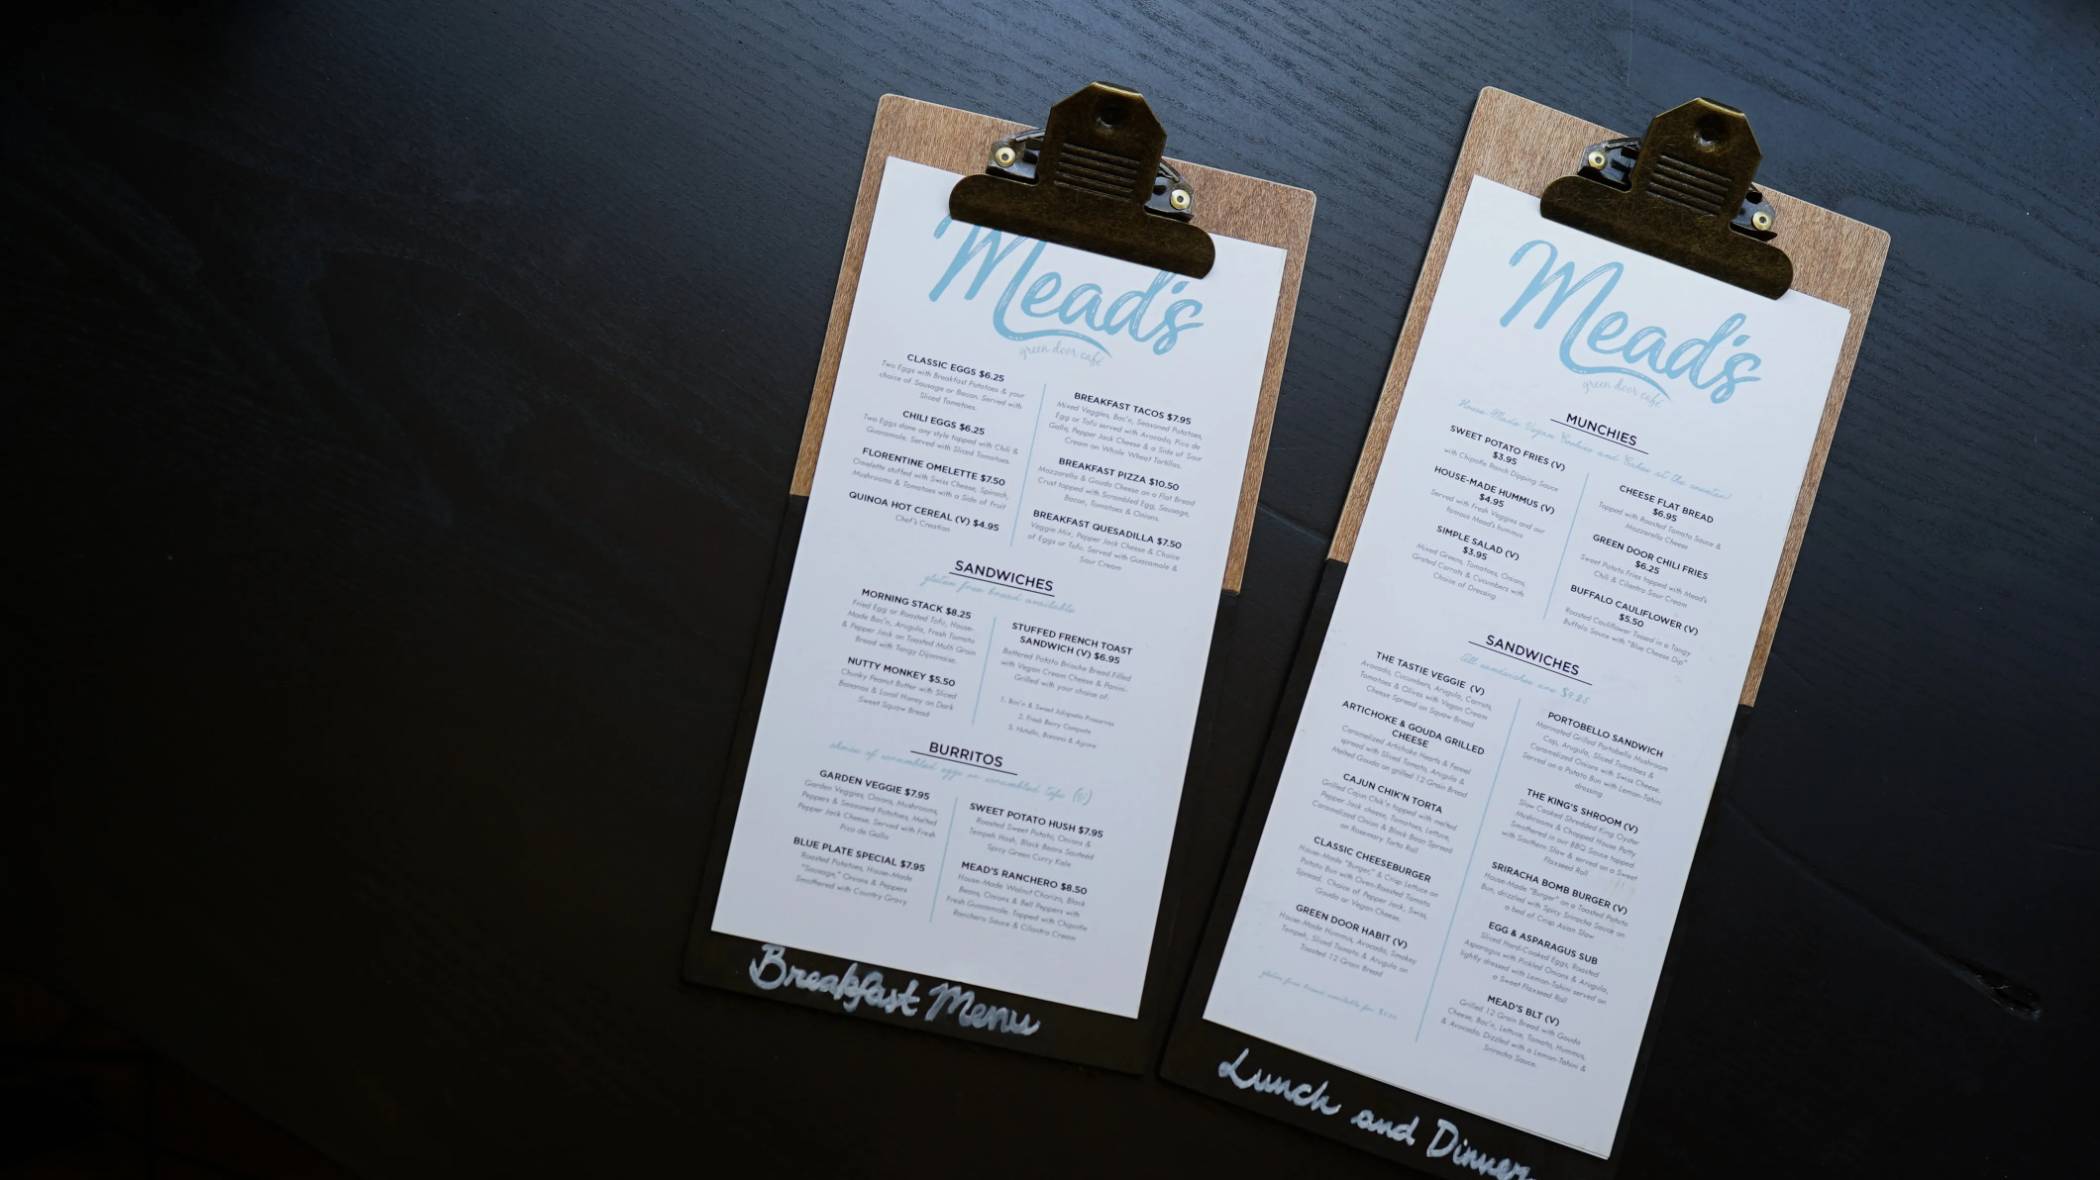 Mead's
green door café
CLASSIC EGGS $6.25
Two Eggs with Breakfast Potatoes & your
choice of Sausage or Bacon. Served with
Sliced Tomatoes.
CHILI EGGS $6.25
Two Eggs done any style topped with Chili &
Guacamole, Served with Sliced Tomatoes.
FLORENTINE OMELETTE $7.50
Omelette stuffed with Swiss Cheese, Spinach,
Mushrooms & Tomatoes with a Side of Fruit
QUINOA HOT CEREAL (V) $4.95
Chef's Creation
BREAKFAST TACOS $7.95
Mixed Veggies, Bac'n, Seasoned Potatoes,
Egg or Tofu served with Avocado, Pico de
Gallo, Pepper Jack Cheese & a Side of Sour
Cream on Whole Wheat Tortillas.
BREAKFAST PIZZA $10.50
Mozzarella & Gouda Cheese on a Flat Bread
Crust topped with Scrambled Egg, Sausage,
Bacon, Tomatoes & Onions.
BREAKFAST QUESADILLA $7.50
Veggie Mix, Pepper Jack Cheese & Choice
of Eggs or Tofu, Served with Guacamole &
Sour Cream
SANDWICHES
gluten free bread available
MORNING STACK $8.25
Fried Egg or Roasted Tofu, House-
Made Bac'n, Arugula, Fresh Tomato
& Pepper Jack on Toasted Multi Grain
Bread with Tangy Dijonnaise.
NUTTY MONKEY $5.50
Chunky Peanut Butter with Sliced
Bananas & Local Honey on Dark
Sweet Squaw Bread
STUFFED FRENCH TOAST
SANDWICH (V) $6.95
Battered Potato Brioche Bread Filled
with Vegan Cream Cheese & Panini-
Grilled with your choice of:
1. Bac'n & Sweet Jalapeño Preserves
2. Fresh Berry Compote
3. Nutella, Banana & Agave
BURRITOS
choice of scrambled eggs or scrambled tofu (V)
GARDEN VEGGIE $7.95
Garden Veggies, Onions, Mushrooms,
Peppers & Seasoned Potatoes, Melted
Pepper Jack Cheese, Served with Fresh
Pico de Gallo
BLUE PLATE SPECIAL $7.95
Roasted Potatoes, House-Made
"Sausage," Onions & Peppers
Smothered with Country Gravy
SWEET POTATO HUSH $7.95
Roasted Sweet Potato, Onions &
Tempeh Hash, Black Beans Sautéed
Spicy Green Curry Kale
MEAD'S RANCHERO $8.50
House-Made Walnut Chorizo, Black
Beans, Onions & Bell Peppers with
Fresh Guacamole. Topped with Chipotle
Ranchero Sauce & Cilantro Cream
Breakfast Menu
Mead's
green door café
MUNCHIES
House-Made Vegan Cookies and Cakes at the counter!
SWEET POTATO FRIES (V)
$3.95
with Chipotle Ranch Dipping Sauce
HOUSE-MADE HUMMUS (V)
$4.95
Served with Fresh Veggies and our
famous Mead's hummus
SIMPLE SALAD (V)
$3.95
Mixed Greens, Tomatoes, Onions,
Grated Carrots & Cucumbers with
Choice of Dressing
CHEESE FLAT BREAD
$6.95
Topped with Roasted Tomato Sauce &
Mozzarella Cheese
GREEN DOOR CHILI FRIES
$6.25
Sweet Potato Fries topped with Mead's
Chili & Cilantro Sour Cream
BUFFALO CAULIFLOWER (V)
$5.50
Roasted Cauliflower Tossed in a Tangy
Buffalo Sauce with "Blue Cheese Dip"
SANDWICHES
All sandwiches are $9.25
THE TASTIE VEGGIE (V)
Avocado, Cucumbers, Arugula, Carrots,
Tomatoes & Olives with Vegan Cream
Cheese Spread on Squaw Bread
ARTICHOKE & GOUDA GRILLED
CHEESE
Caramelized Artichoke Hearts & Fennel
spread with Sliced Tomato, Arugula &
Melted Gouda on grilled 12 Grain Bread
CAJUN CHIK'N TORTA
Grilled Cajun Chik'n topped with melted
Pepper Jack cheese, Tomatoes, Lettuce,
Caramelized Onion & Black Bean Spread
on Rosemary Torta Roll
CLASSIC CHEESEBURGER
House-Made "Burger," & Crisp Lettuce on
Potato Bun with Oven-Roasted Tomato
Spread. Choice of Pepper Jack, Swiss,
Gouda or Vegan Cheese.
GREEN DOOR HABIT (V)
House-Made Hummus, Avocado, Smokey
Tempeh, Sliced Tomato & Arugula on
Toasted 12 Grain Bread
gluten free bread available for
PORTOBELLO SANDWICH
Marinated Grilled Portobello Mushroom
Cap, Arugula, Sliced Tomatoes &
Caramelized Onions with Swiss Cheese,
Served on a Potato Bun with Lemon-Tahini
dressing
THE KING'S SHROOM (V)
Slow Cooked Shredded King Oyster
Mushrooms & Chopped House Patty
Smothered in our BBQ Sauce topped
with Southern Slaw & served on a Sweet
Flaxseed Roll
SRIRACHA BOMB BURGER (V)
House-Made "Burger" on a Toasted Potato
Bun, drizzled with Spicy Sriracha Sauce on
a bed of Crisp Asian Slaw
EGG & ASPARAGUS SUB
Sliced Hard-Cooked Eggs, Roasted
Asparagus with Pickled Onions & Arugula,
lightly dressed with Lemon-Tahini served on
a Sweet Flaxseed Roll
MEAD'S BLT (V)
Grilled 12 Grain Bread with Gouda
Cheese, Bac'n, Lettuce, Tomato, Hummus,
& Avocado. Dizzled with a Lemon-Tahini &
Sriracha Sauce.
Lunch and Dinner